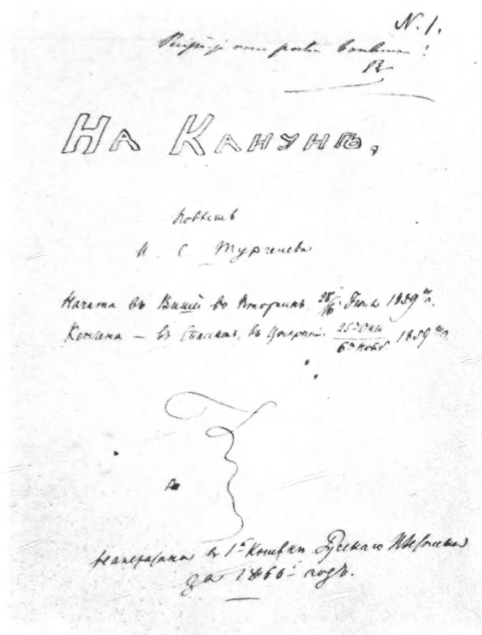 N. 1.
На Канунѣ,
Повѣсть
И. С. Тургенева
Начата въ Виши во Вторникъ, 28/16 Іюня 1859го г.
Кончена — въ 25го Окт. 6го Нояб. 1859го г.
Напечатана въ 1й Книжкѣ Русскаго Вѣстника
за 1860й годъ.